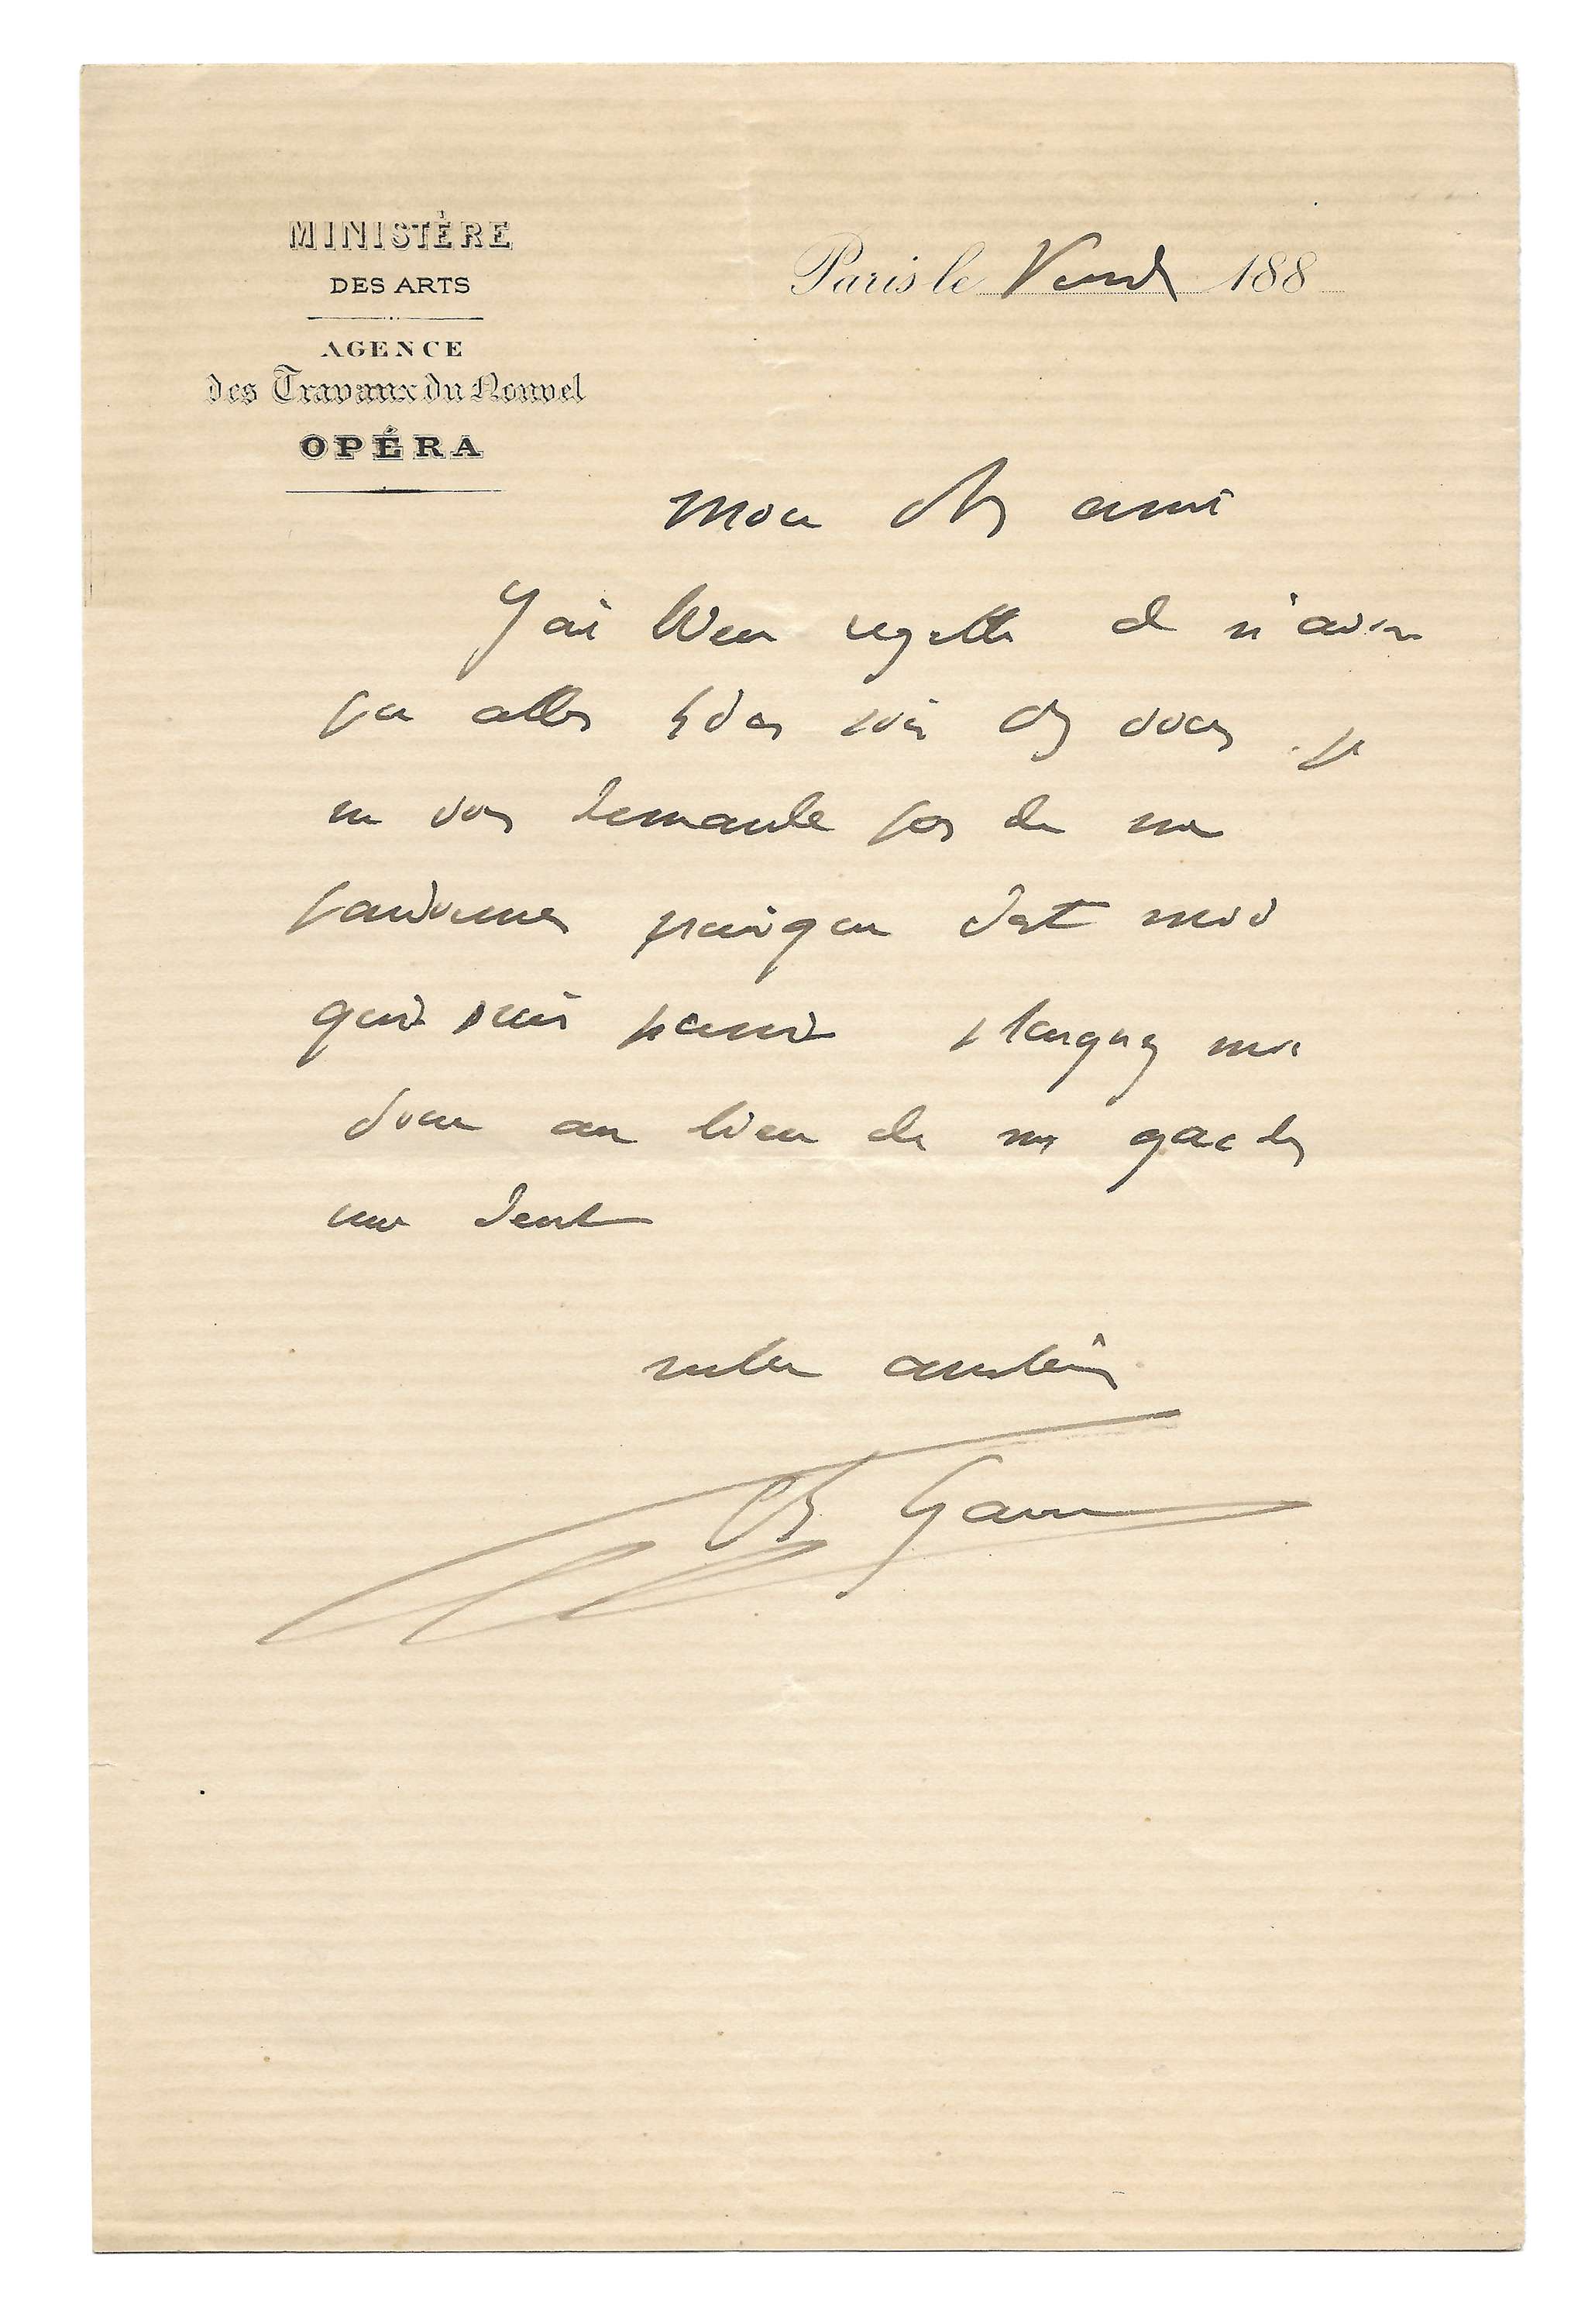 MINISTÈRE
DES ARTS
AGENCE
des Travaux du Nouvel
OPÉRA
Paris le Vend 188
Mon ch ami
J'ai bien regretté de n'avoir
pu aller hier soir chez vous. Je
ne vous demande pas de me
pardonner puisque c'est moi
qui suis puni plaignez moi
donc au lieu de me garder
une dent
votre
Ch Garnier